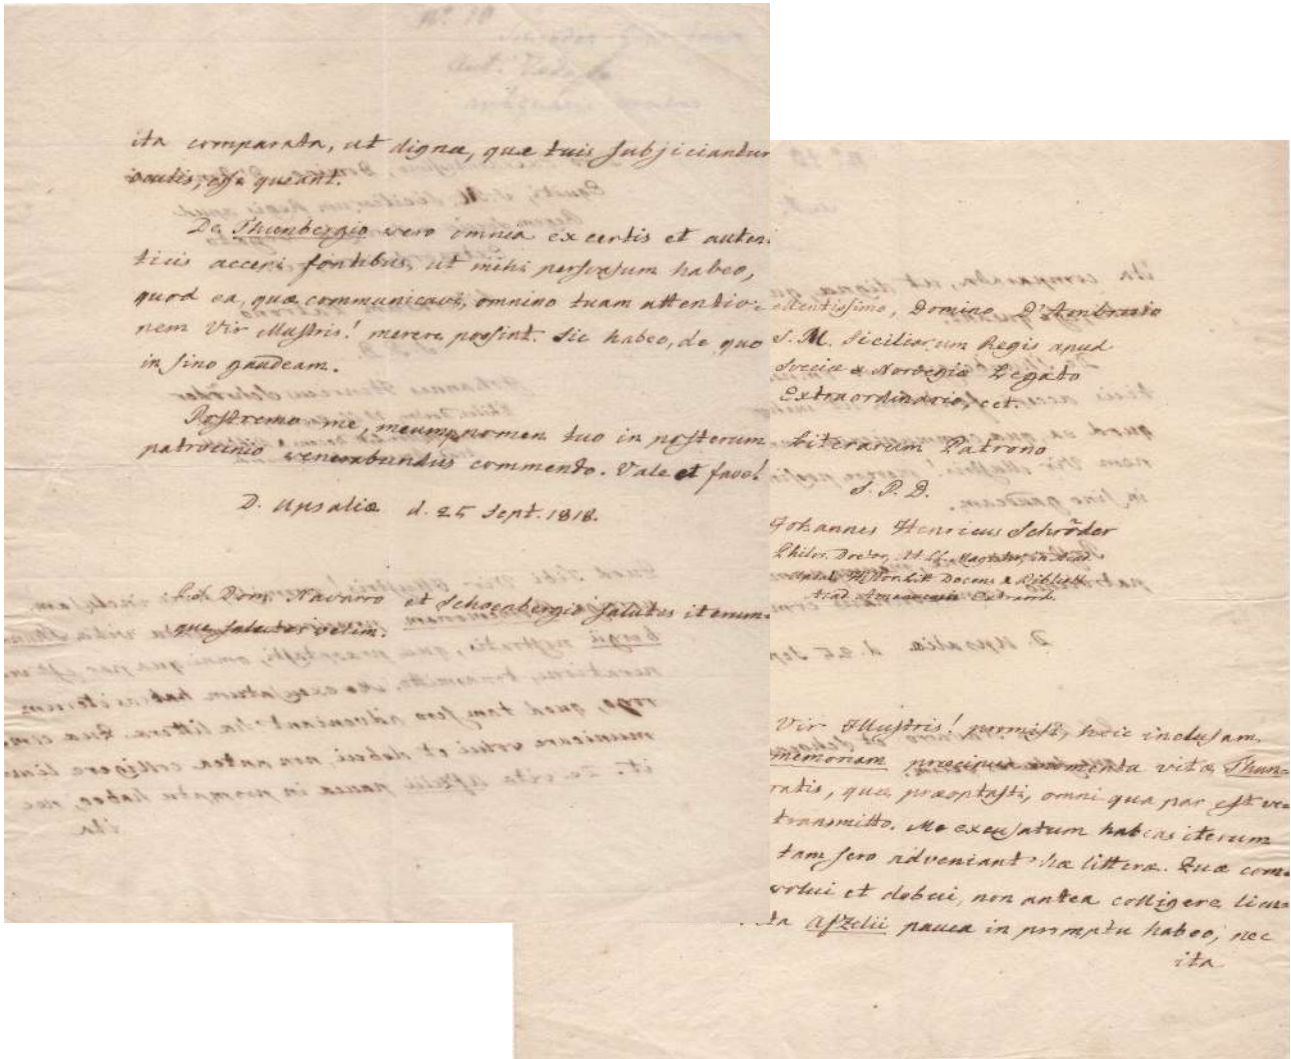 ita comparata, ut dignæ, quæ tuis subjiciantur
oculis, esse queant.
De Thunbergio vero omnia ex certis et auten-
ticis accepi fontibus, ut mihi persvasum habeo,
quod ea, quæ communicavi, omnino tuam attentio-
nem Vir Illustris! merere possint. Sic habeo, de quo
in sino gaudeam.
Postremo me, meumq nomen tuo in posterum
patrocinio venerabundus commendo. Vale et fave!
D. Upsaliæ d. 25 Sept. 1818.
Dom. Navarro et Schoenbergio salutes iterum-
que salutes velim.
ellentissimo, Domino D'Ambrosio
S. M. Siciliarum Regis apud
Sveciæ & Norvegiæ Legato
Extraordinario, cet.
Literarum Patrono
S. P. D.
Johannes Henricus Schröder
Philos. Doctor, Magister, in Acad
Upsal. Docens & Biblioth.
Acad. Amanuensis Extraord.
Vir Illustris! permisi, heic inclusam
memoriam præcipua momenta vitæ Thun-
ratis, quæ præoptasti, omni qua par est ve-
transmitto. Me excusatum habeas iterum
tam sero adveniant hæ litteræ. Quæ com-
volui et debui, non antea colligere licu-
ta Afzelii pauca in promptu habeo, nec
ita